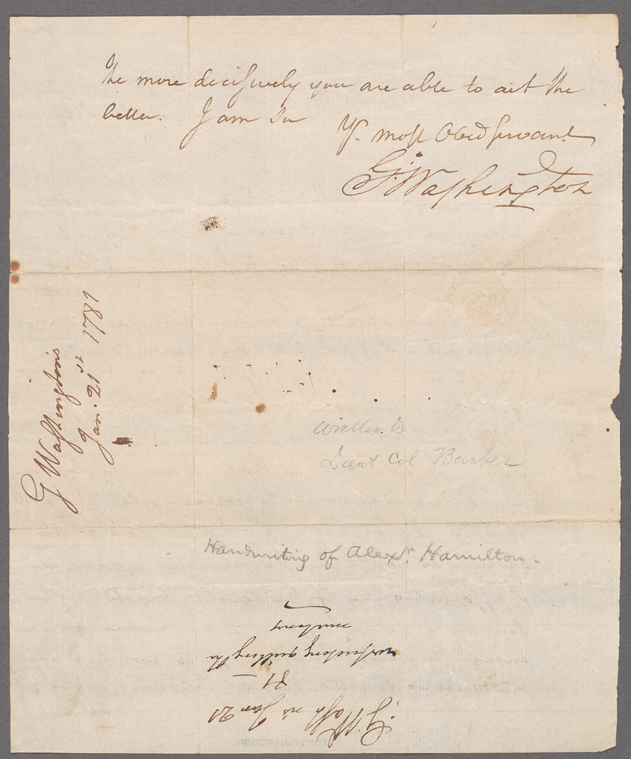 The more decisively you are able to act the
better. I am Sir
Yr. most Obed servant
G: Washington
G Washington's
Jan: 21st 1781
written to
Lieut Col Barber
Handwriting of Alexr. Hamilton.
G. Wash Jan 21
81
respecting quelling the
mutiny